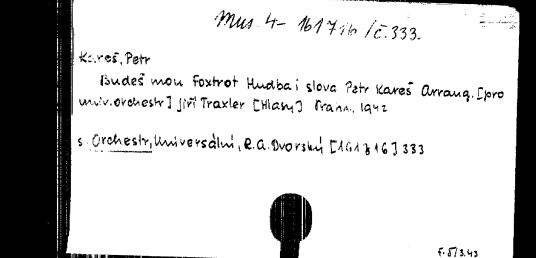 Mus. 4- 161716/č.333.
Kareš, Petr
Budeš mou Foxtrot Hudba i slova Petr Kareš Arrang. [pro
univ. orchestr] Jiří Traxler [Hlasy] Praha, 1942
s. Orchestr, Universální, R.A. Dvorský [161716] 333